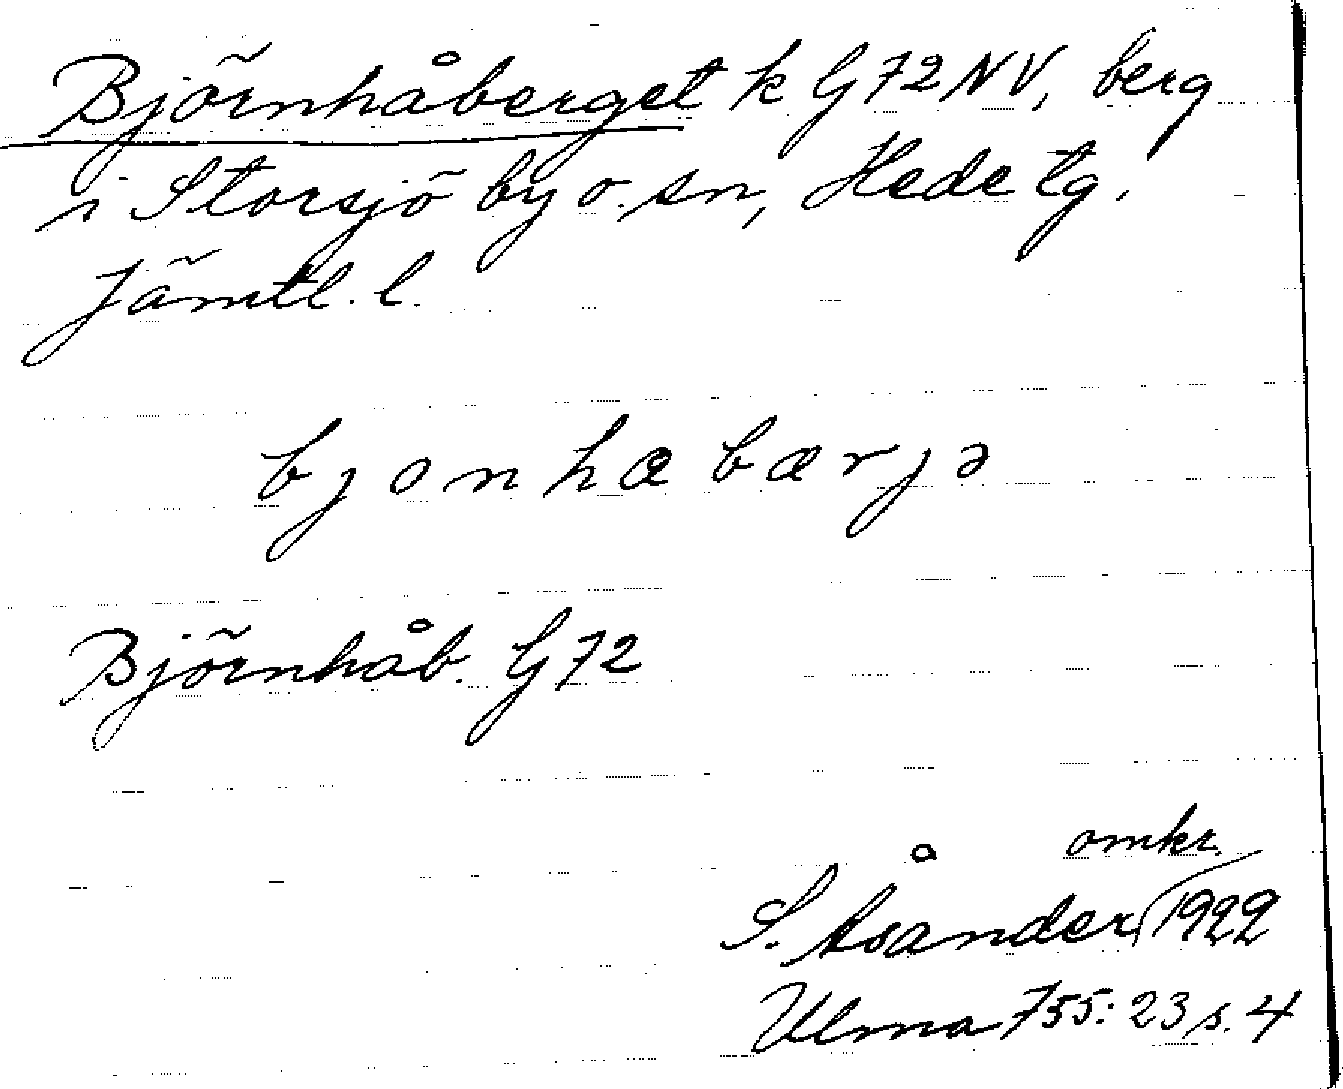 Björnhåberget k G72NV, berg
i Storsjö by o. sn, Hede tg.
Jämtl. l.
bjonhæbærjə
Björnhåb. G72
omkr.
S. Åsander, 1922
Ulma 755: 23 s. 4